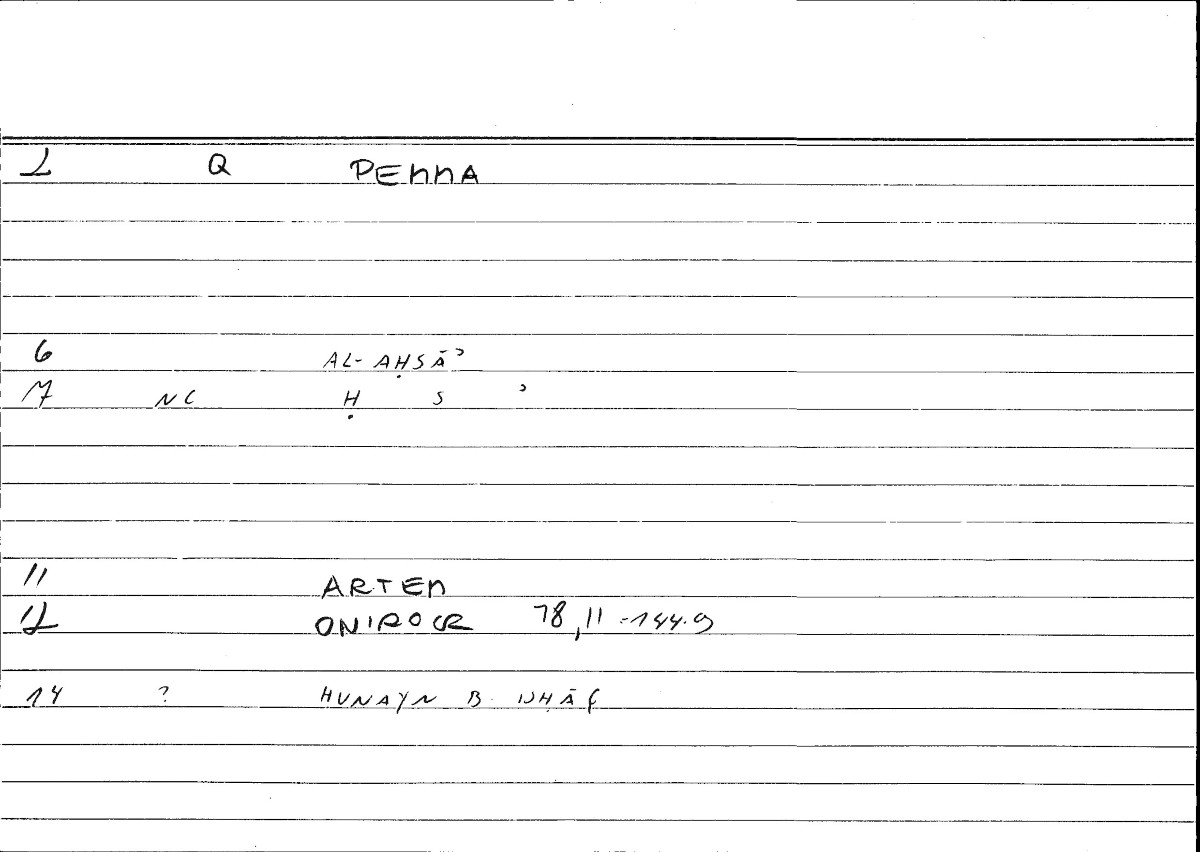 2 Q PEMMA
6 AL-AḤSĀʾ
7 NC Ḥ S ʾ
11 ARTEM
12 ONIROCR 78,11 -144.9
14 ? HUNAYN B. ISḤĀQ